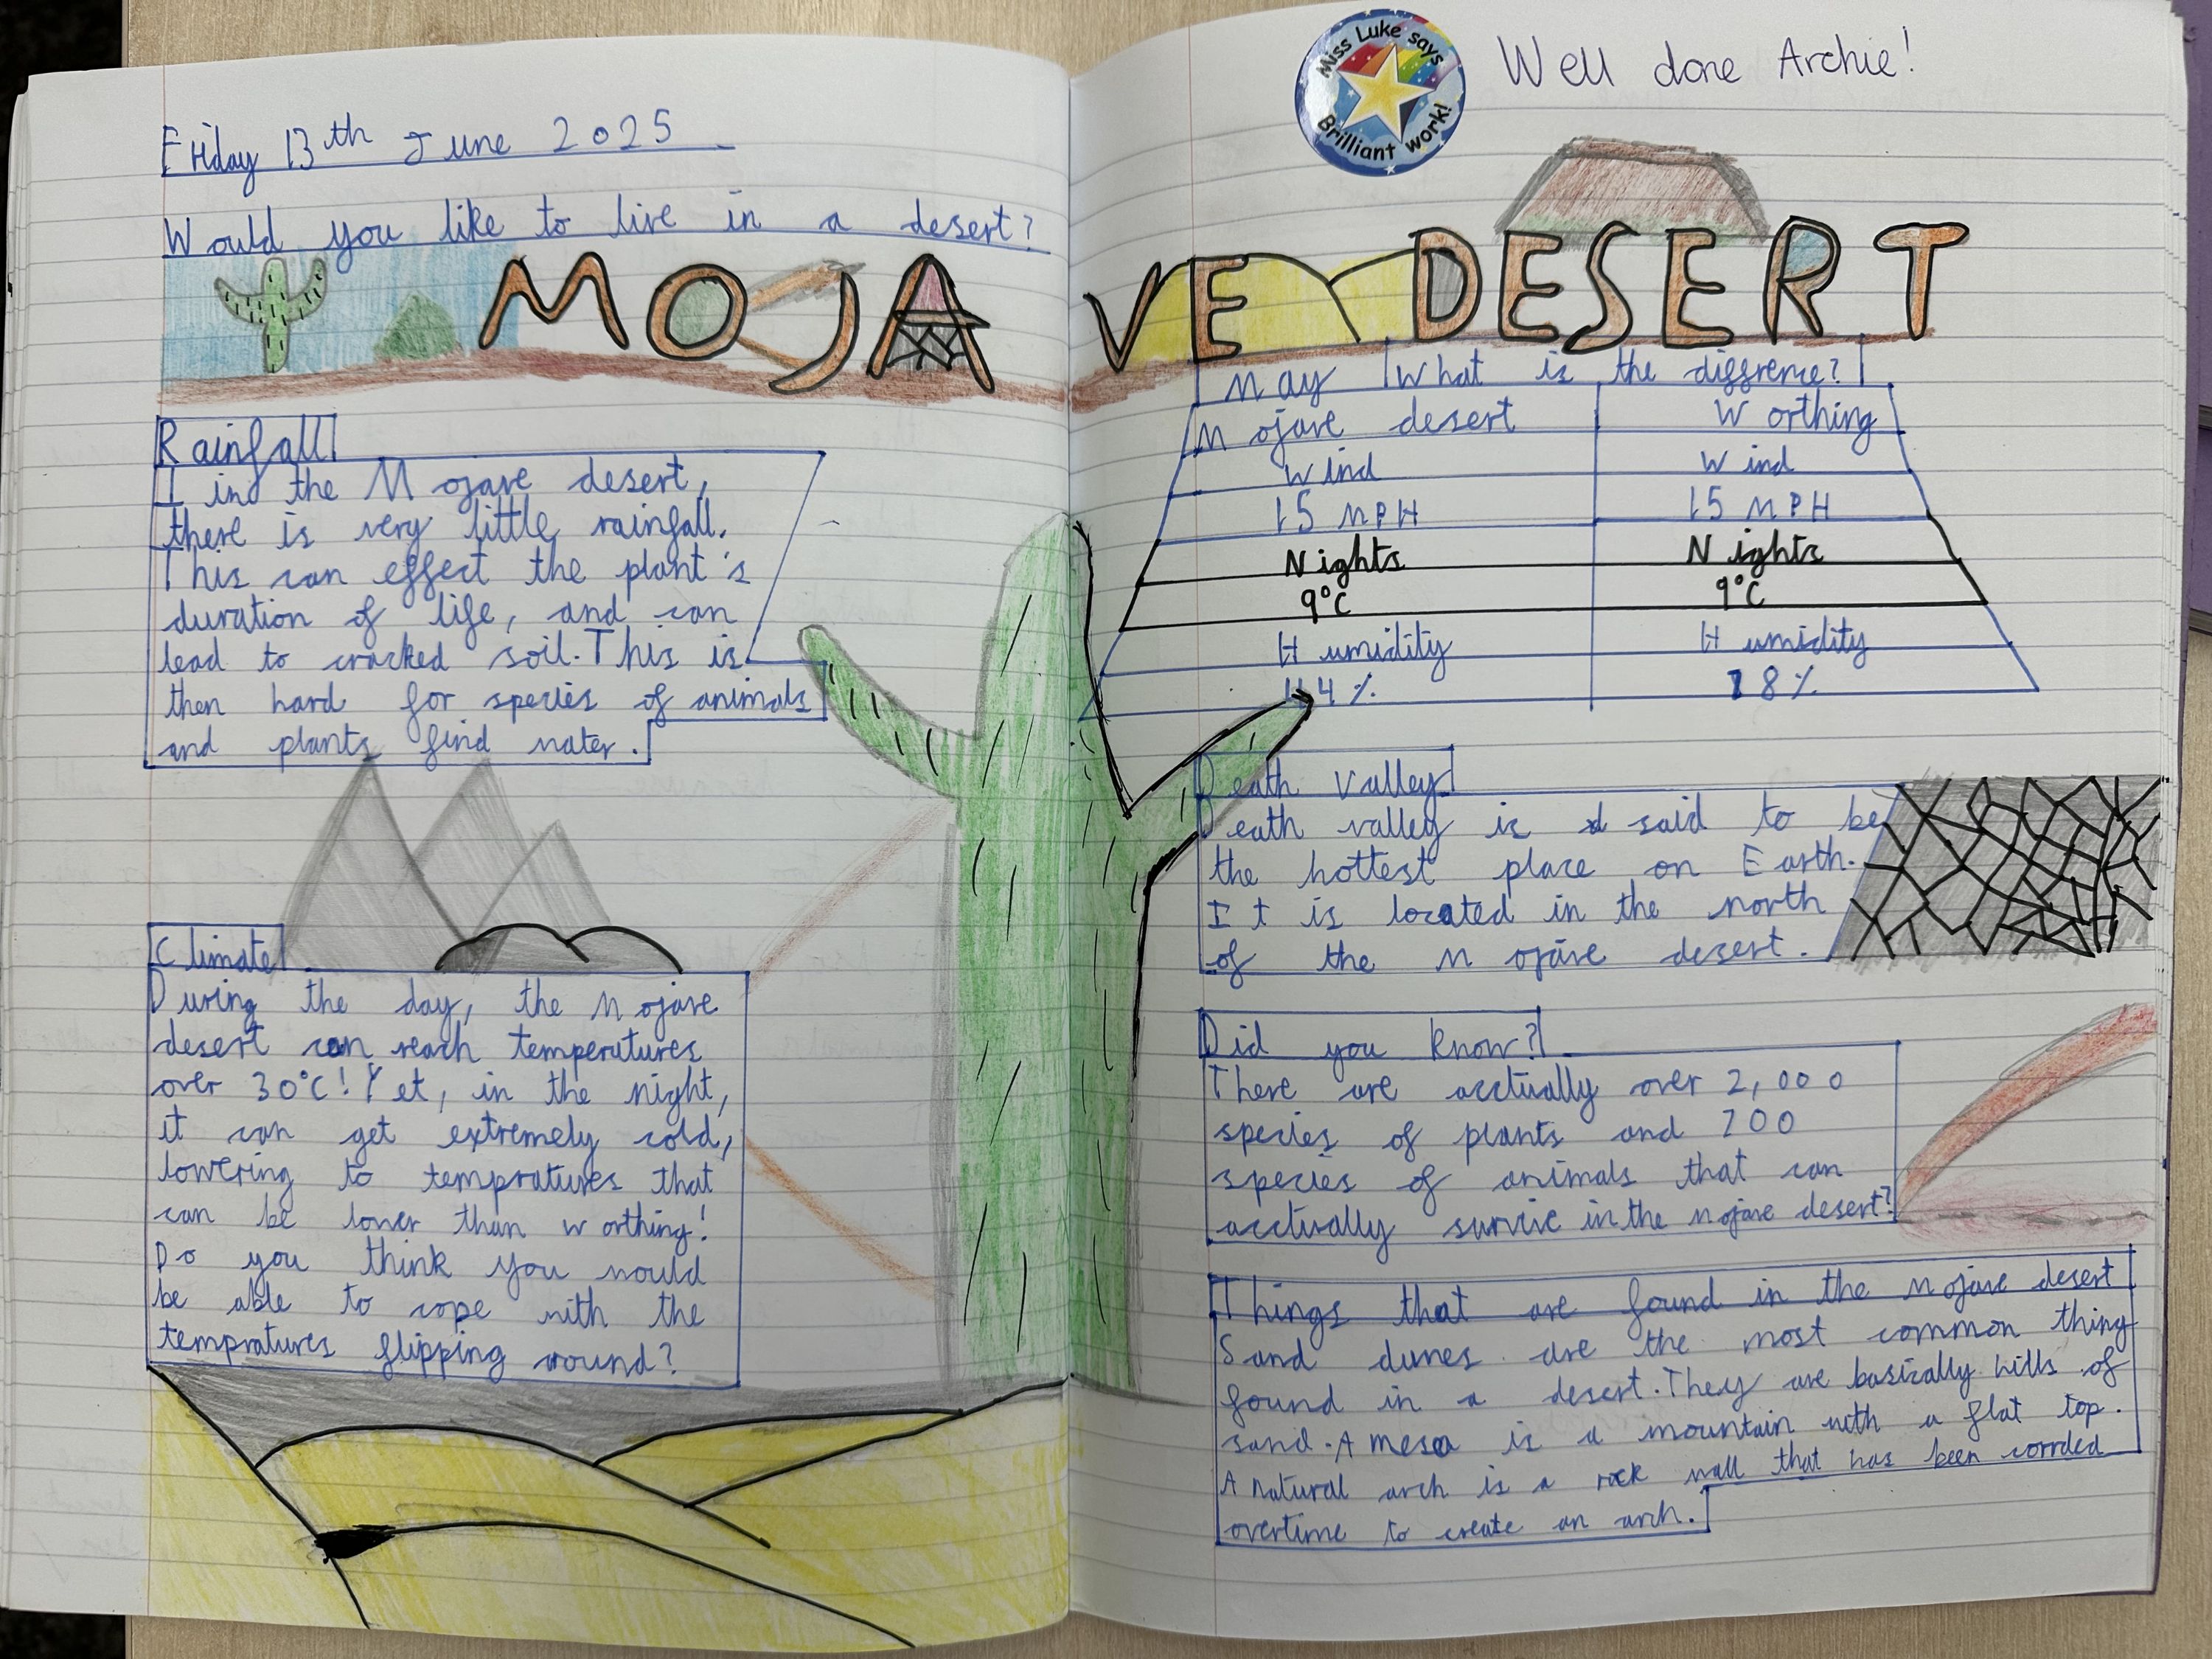 Friday 13th June 2025
Would you like to live in a desert?
MOJAVE DESERT
Rainfall
I in the Mojave desert,
there is very little rainfall.
This can effect the plant's
duration of life, and can
lead to cracked soil. This is
then hard for species of animals
and plants find water.
Climate
During the day, the Mojave
desert can reach temperatures
over 30°C! Yet, in the night,
it can get extremely cold,
lowering to tempratures that
can be lower than worthing!
Do you think you would
be able to cope with the
tempratures flipping around?
Miss Luke says
Brilliant work!
Well done Archie!
May What is the diffrence?
Mojave desert Worthing
Wind Wind
15 MPH 15 MPH
Nights Nights
9°C 9°C
Humidity Humidity
4% 8%
Death Valley
Death valley is said to be
the hottest place on Earth.
It is located in the north
of the Mojave desert.
Did you know?
There are acctually over 2,000
species of plants and 200
species of animals that can
acctually survive in the Mojave desert?
Things that are found in the Mojave desert
Sand dunes are the most common thing
found in a desert. They are basically hills of
sand. A mesa is a mountain with a flat top.
A natural arch is a rock wall that has been
overtime to create an arch.